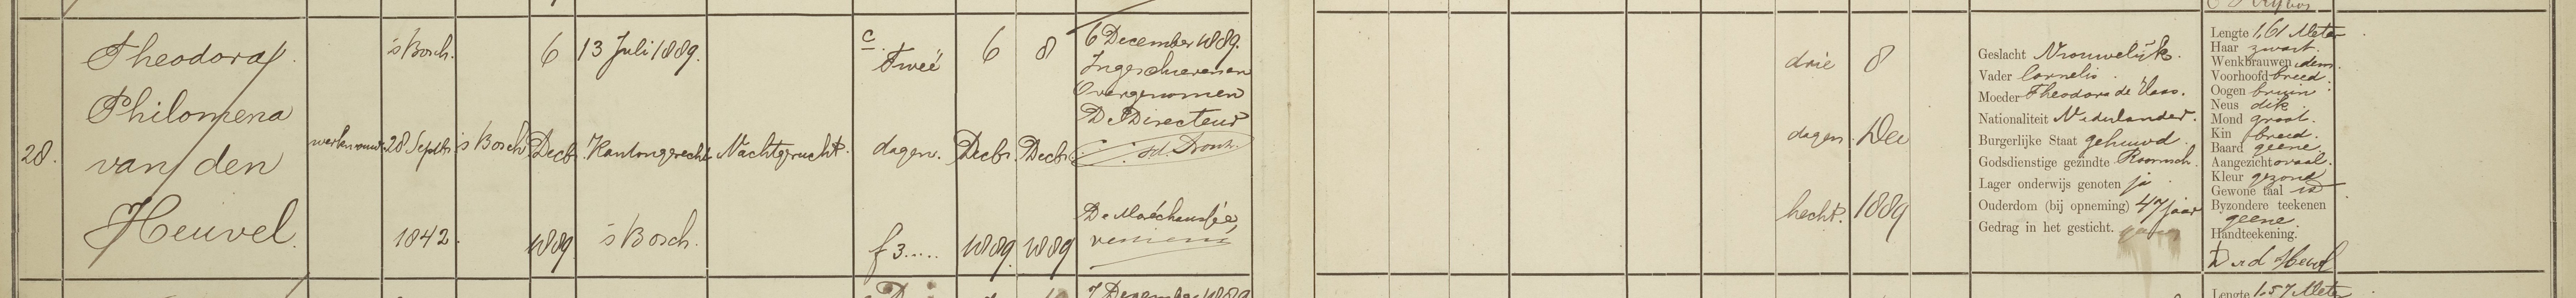 28.
Theodora
Philomena
van den
Heuvel.
werkvrouw
's Bosch.
28 Septbr
1842.
's Bosch
6
Decbr
1889
13 Juli 1889.
Kantongerecht
's Bosch.
Nachtgerucht.
c
Twee
dagen.
f 3.....
6
Decbr.
1889.
8
Decbr
1889
6 December 1889.
Ingeschreven en
Overgenomen
De Directeur
De Maréchaussée,
drie
dagen
hecht.
8
Dec
1889
Geslacht Vrouwelijk.
Vader Cornelis.
Moeder Theodora de
Nationaliteit Nederlander.
Burgerlijke Staat gehuwd
Godsdienstige gezindte Roomsch.
Lager onderwijs genoten ja
Ouderdom (bij opneming) 47 jaar
Gedrag in het gesticht.
Lengte 1,61 Meter
Haar zwart.
Wenkbrauwen idem.
Voorhoofd breed.
Oogen bruin.
Neus dik.
Mond groot.
Kin breed.
Baard geene.
Aangezicht ovaal.
Kleur gezond
Gewone taal
Byzondere teekenen
geene.
Handteekening.
7 December 1889
Lengte 1.57 Meter